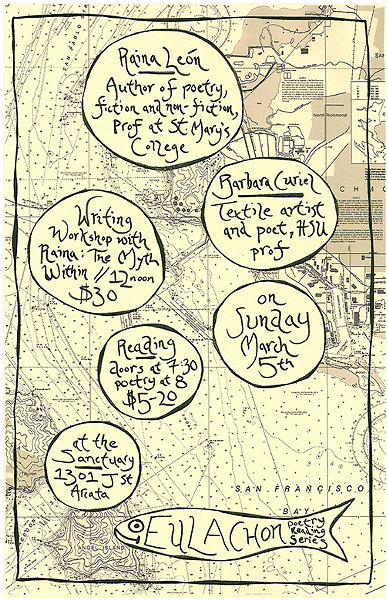 Raina León
Author of poetry,
fiction and non-fiction,
Prof at St Mary's
College
North Richmond
Barbara Curiel
Textile artist
and poet, HSU
prof
Writing
Workshop with
Raina: The Myth
Within // 12 noon
$30
on
Sunday
March
5th
Reading
doors at 7:30
poetry at 8
$5-20
at the
Sanctuary
1301 J st
Arcata
SAN FRANCISCO
BAY
EULACHON
Poetry
Reading
Series
ANGEL ISLAND